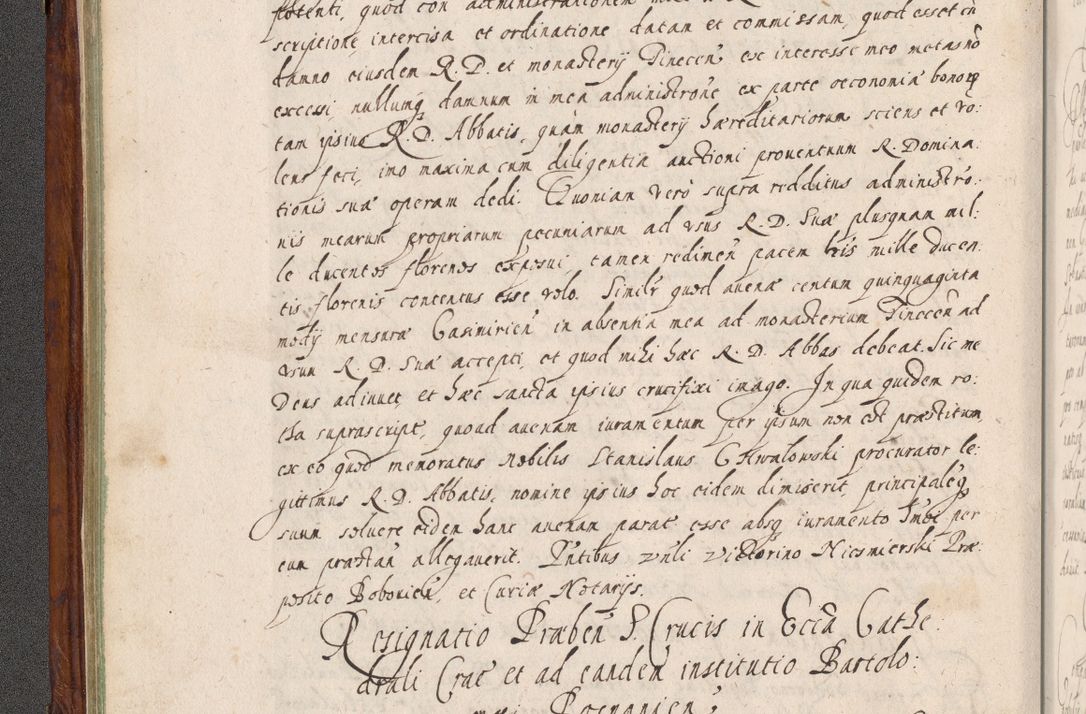 potenti, quod con administrationem
scriptione intercisa et ordinatione datam et commissam, quod esset in
damno eiusdem R. D. et monastery Tinecen̄ ex interesse meo metas nō
excessi, nullumq̨ damnum in mea administrōne ex parte oeconomiæ bonoꝝ
tam ipsius R. D. Abbatis, quàm monastery hæreditariorum sciens et vo:
lens feci, imo maxima cum diligentia auctioni prouentuum R. Domina:
tionis suæ operam dedi. Quoniam verò supra redditus administrō:
nis mearum propriarum pecuniarum ad vsus R. D. Suæ plusquam mil:
le ducentos florenos exposui, tamen redimen̄ pacem his mille ducen:
tis florenis contentus esse volo. Simil̄r quod auenæ centum quinquaginta
modÿ mensuræ Casimirien̄ in absentia mea ad monasterium Tinecen̄ ad
vsum R. D. Suæ accepti, et quod mihi hæc R. D. Abbas debeat. Sic me
Deus adiuuet, et hæc sancta ipsius crucifixi imago. In qua quidem ro:
tha suprascript, quoad auenam iuramentum per ipsum non est præstitum,
ex eo quod memoratus Nobilis Stanislaus Chwalowski procurator le:
gittimus R. D. Abbatis, nomine ipsius hoc eidem dimiserit, principaleq̨
suum soluere eidem hanc auenam parat̄ esse absq̨ iuramento Imōe per
eum præstan̄ allegauerit. Pn̄tibus Vn̄li Victorino Niesmierski Præ:
posito Bobovien̄, et Curiæ Notarijs.
Resignatio Præben̄ S. Crucis in Eccā Cathe:
drali Crac̄ et ad eanden̄ institutio Bartolo:
mei Posnanien̄